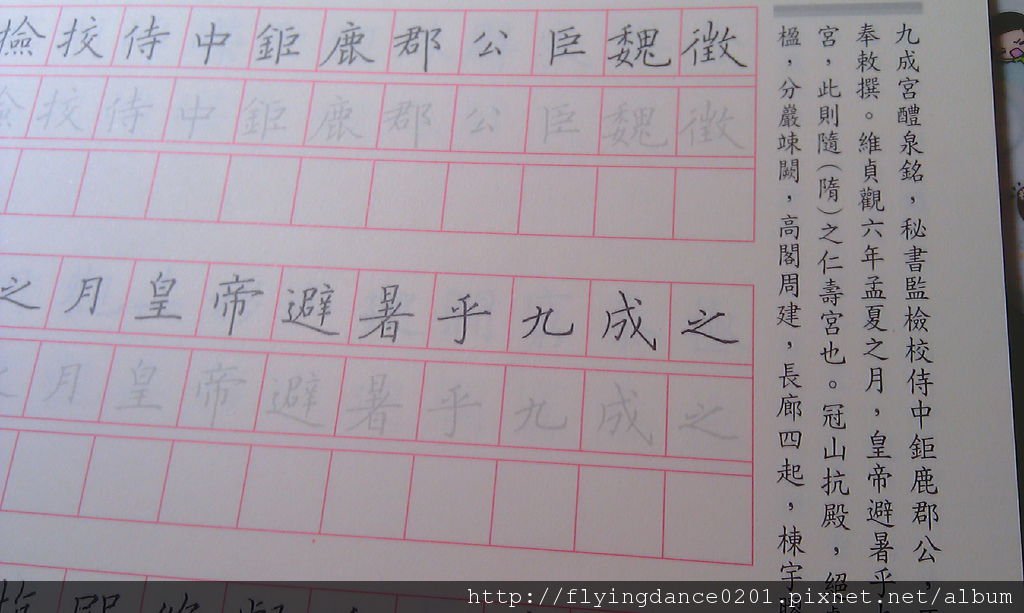 撿挍侍中鉅鹿郡公臣魏徵
撿挍侍中鉅鹿郡公臣魏徵
之月皇帝避暑乎九成之
月皇帝避暑乎九成之
九成宮醴泉銘，秘書監檢校侍中鉅鹿郡公，
奉敕撰。維貞觀六年孟夏之月，皇帝避暑乎
宮，此則隨（隋）之仁壽宮也。冠山抗殿，絕
楹，分巖竦闕，高閣周建，長廊四起，棟宇
http://flyingdance0201.pixnet.net/album